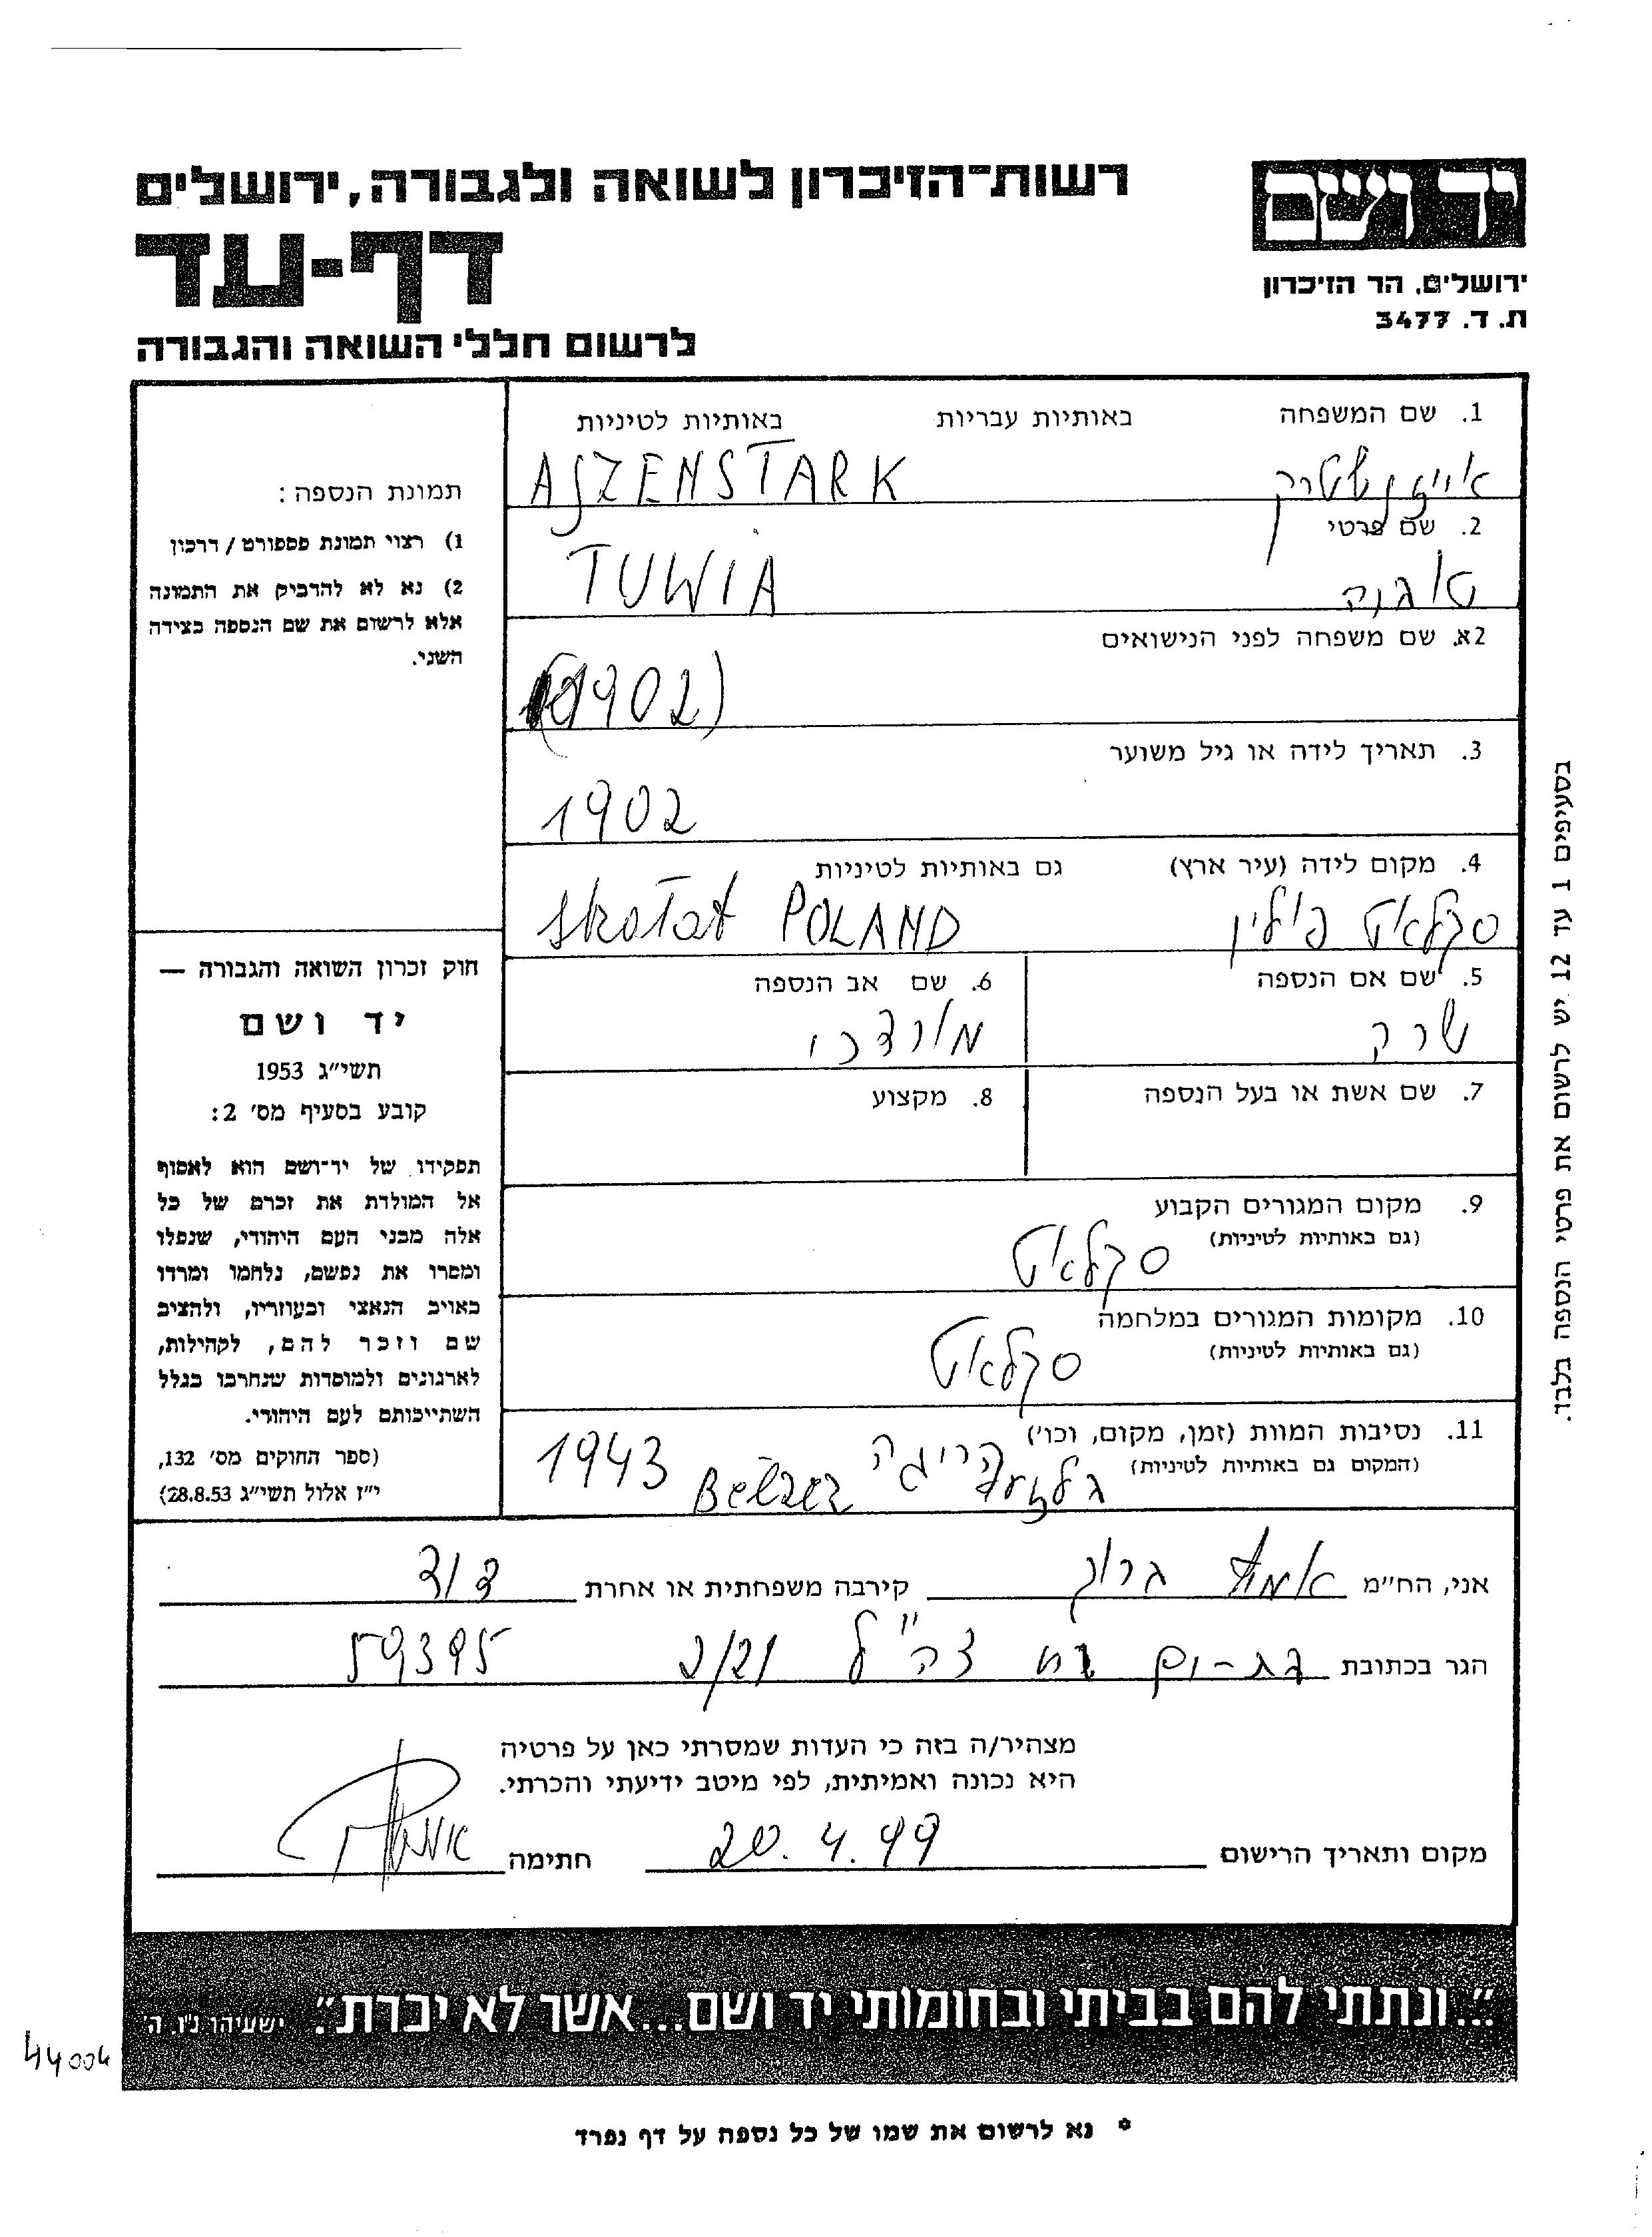 רשות־הזיכרון לשואה ולגבורה, ירושלים
יד ושם
דף-עד
ירושלים, הר הזיכרון
ת. ד. 3477
לרשום חללי השואה והגבורה
1. שם המשפחה באותיות עבריות באותיות לטיניות
אייזנשטרק AJZENSTARK
2. שם פרטי
TUWIA
2א. שם משפחה לפני הנישואים
(1902)
3. תאריך לידה או גיל משוער
1902
4. מקום לידה (עיר ארץ) גם באותיות לטיניות
סקלאט פולין skałat POLAND
5. שם אם הנספה 6. שם אב הנספה
שרה מורדכי
7. שם אשת או בעל הנספה 8. מקצוע
9. מקום המגורים הקבוע
(גם באותיות לטיניות)
סקלאט
10. מקומות המגורים במלחמה
(גם באותיות לטיניות)
סקלאט
11. נסיבות המוות (זמן, מקום, וכו')
(המקום גם באותיות לטיניות)
Bełzec 1943
תמונת הנספה:
1) רצוי תמונת פספורט / דרכון
2) נא לא להדביק את התמונה
אלא לרשום את שם הנספה בצידה
השני.
חוק זכרון השואה והגבורה —
יד ושם
תשי"ג 1953
קובע בסעיף מס' 2:
תפקידו של יד־ושם הוא לאסוף
אל המולדת את זכרם של כל
אלה מבני העם היהודי, שנפלו
ומסרו את נפשם, נלחמו ומרדו
באויב הנאצי ובעוזריו, ולהציב
שם וזכר להם, לקהילות,
לארגונים ולמוסדות שנחרבו בגלל
השתייכותם לעם היהודי.
(ספר החוקים מס' 132,
י"ז אלול תשי"ג 28.8.53)
בסעיפים 1 עד 12 יש לרשום את פרטי הנספה בלבד.
אני, הח"מ קירבה משפחתית או אחרת דוד
הגר בכתובת בת-ים צה"ל 2/21 59395
מצהיר/ה בזה כי העדות שמסרתי כאן על פרטיה
היא נכונה ואמיתית, לפי מיטב ידיעתי והכרתי.
מקום ותאריך הרישום 20.4.99 חתימה
"...ונתתי להם בביתי ובחומותי יד ושם...אשר לא יכרת". ישעיהו נ"ו, ה'
44004
* נא לרשום את שמו של כל נספה על דף נפרד